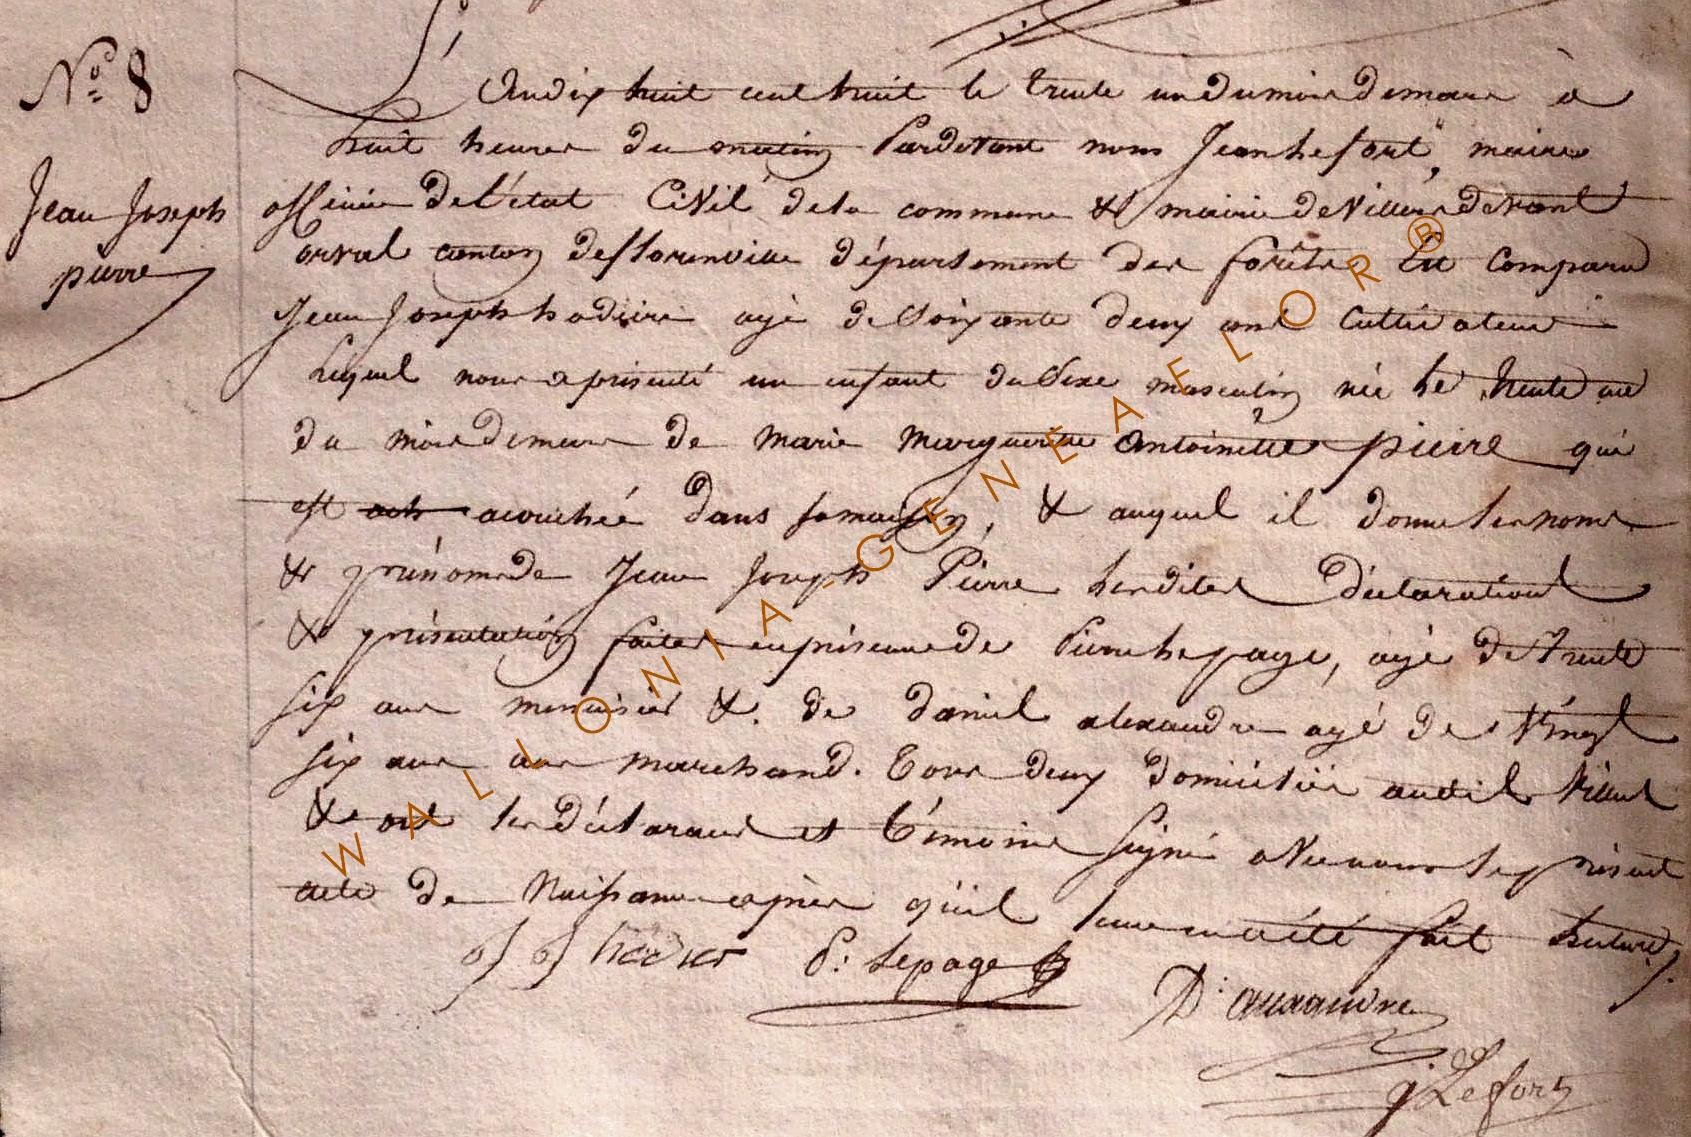 N° 8
Jean Joseph
pierre
L'An dix huit cent huit le trente un du mois de mars à
huit heures du matin Pardevant nous Jean Lefort, maire
officier de l'état Civil de la commune & mairie de Villers devant
orval canton de florenville département des forêts Est comparu
Jean Joseph hadier agé de Soixante deux ans Cultivateur
Lequel nous a présenté un enfant du Sexe masculin née le trente un
du mois de mars de marie marguerite antoinette pierre qui
est acouchée dans sa maison, & auquel il donne les noms
& prénoms de Jean Joseph Pierre Lesdites déclarations
& présentation faites en présence de Pierre Lepage, agé de trente
six ans menuisier & de daniel alexandre agé de Vingt
six ans marchand. Tous deux domiciliés audit Villers
& ont les déclarant et témoins signé avec nous le présent
acte de Naissance après qu'il leur en a été fait lecture.
J J hadier P: Lepage
D: alexandre
J Lefort
WALLONIA-GENEAELOR®